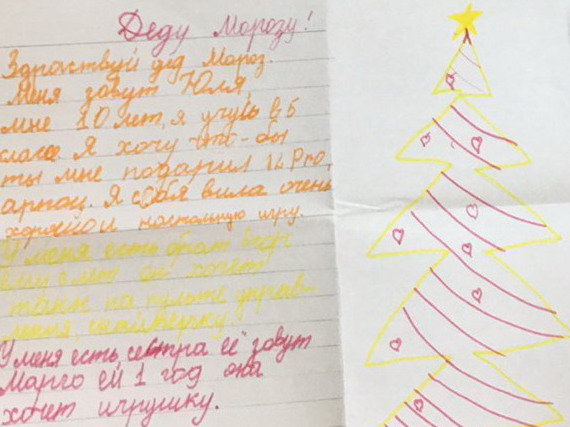 Деду Морозу!
Здравствуй дед Мороз.
Меня зовут Юля,
мне 10 лет, я учусь в 5
класе. Я хочу что-бы
ты мне подарил 12 Pro,
Я себя вила очень
хорошо и настольную игру.
У меня есть брат
лет он хочет
танк на пульте управ-
ления,
У меня есть сестра её зовут
Марго ей 1 год она
хочет игрушку.